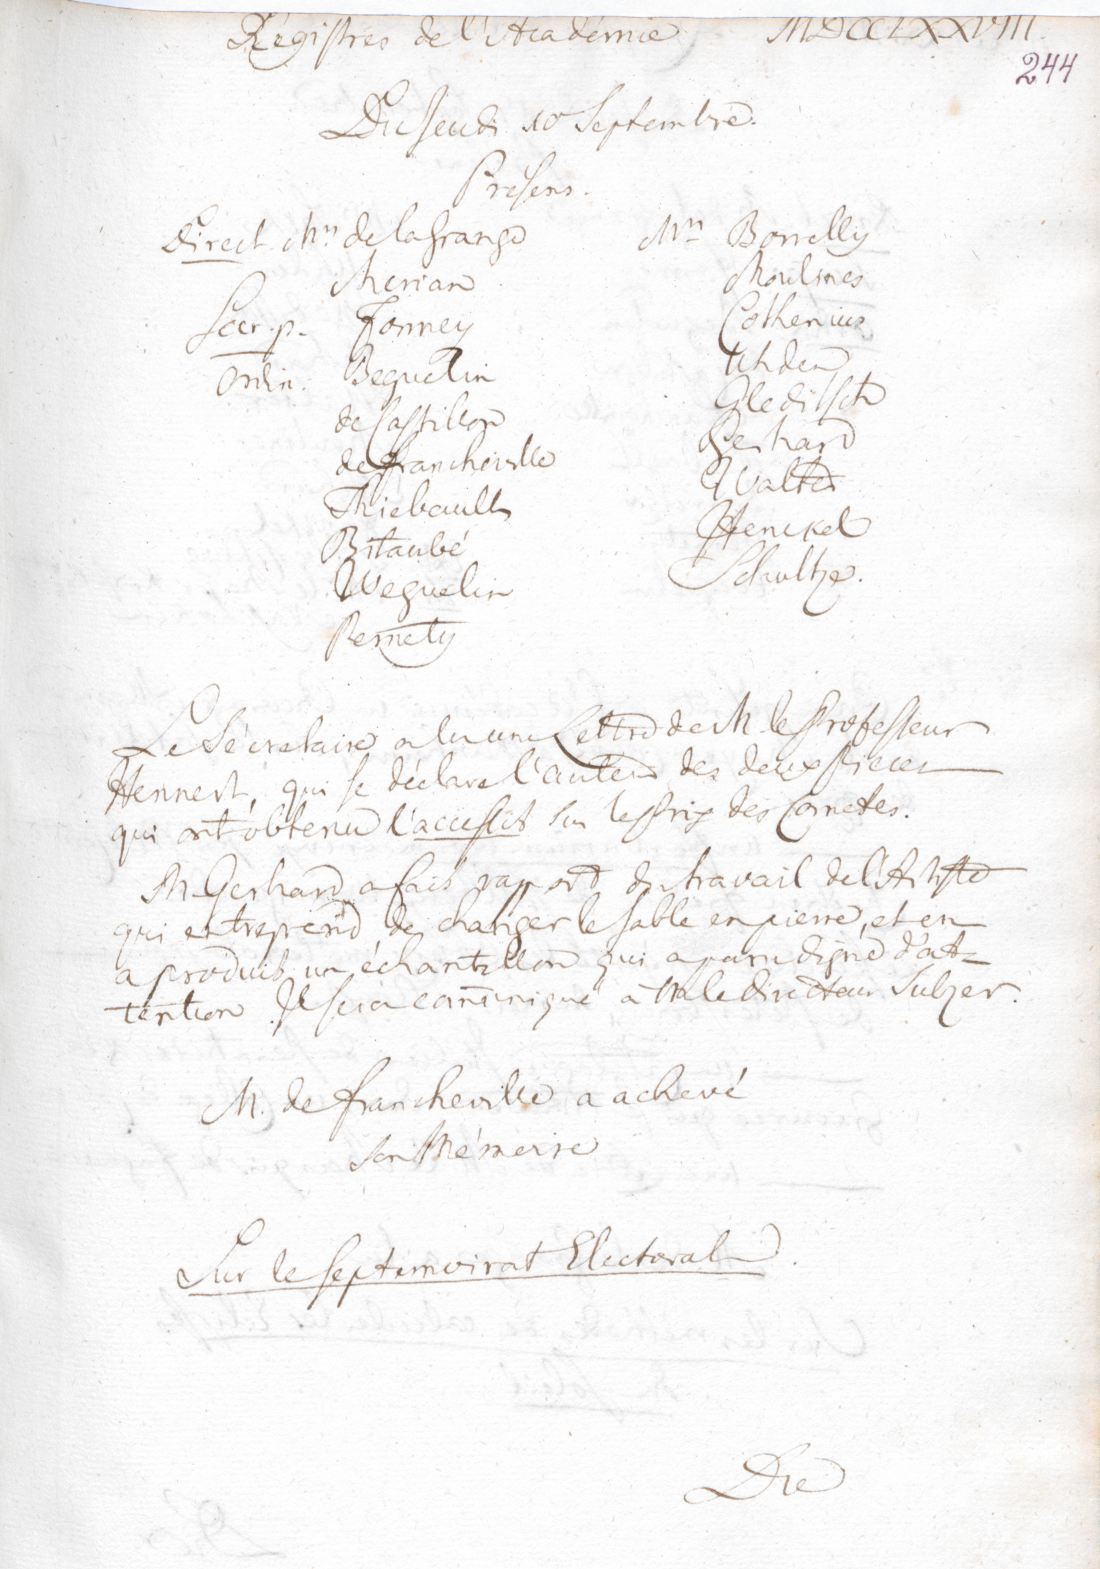 Régistres de l'Académie MDCCLXXVIII.
244
Du Jeudi 10 Septembre.
Presens.
Direct. Mrs de la Grange
Merian
Secr. p. Formey
Ordin. Beguelin
de Castillon
de Francheville
Thiebault
Bitaubé
Weguelin
Pernety
Mrs Borrelly
Moulines
Cothenius
Uhden
Gleditsch
Gerhard
Walter
Henckel
Schultze.
Le Sécretaire a lu une Lettre de M. le Professeur
Hennert, qui se déclare l'auteur des deux Pieces
qui ont obtenu l'accessit sur le Prix des Cometes.
M. Gerhard a fait rapport du travail de l'Artiste
qui entreprend de changer le sable en pierre, et en
a produit un échantillon qui a paru digne d'at-
tention. Il sera com̄uniqué à M. le Directeur Sulzer.
M. de Francheville a achevé
son Mémoire
Sur le Septemvirat Electoral.
Du